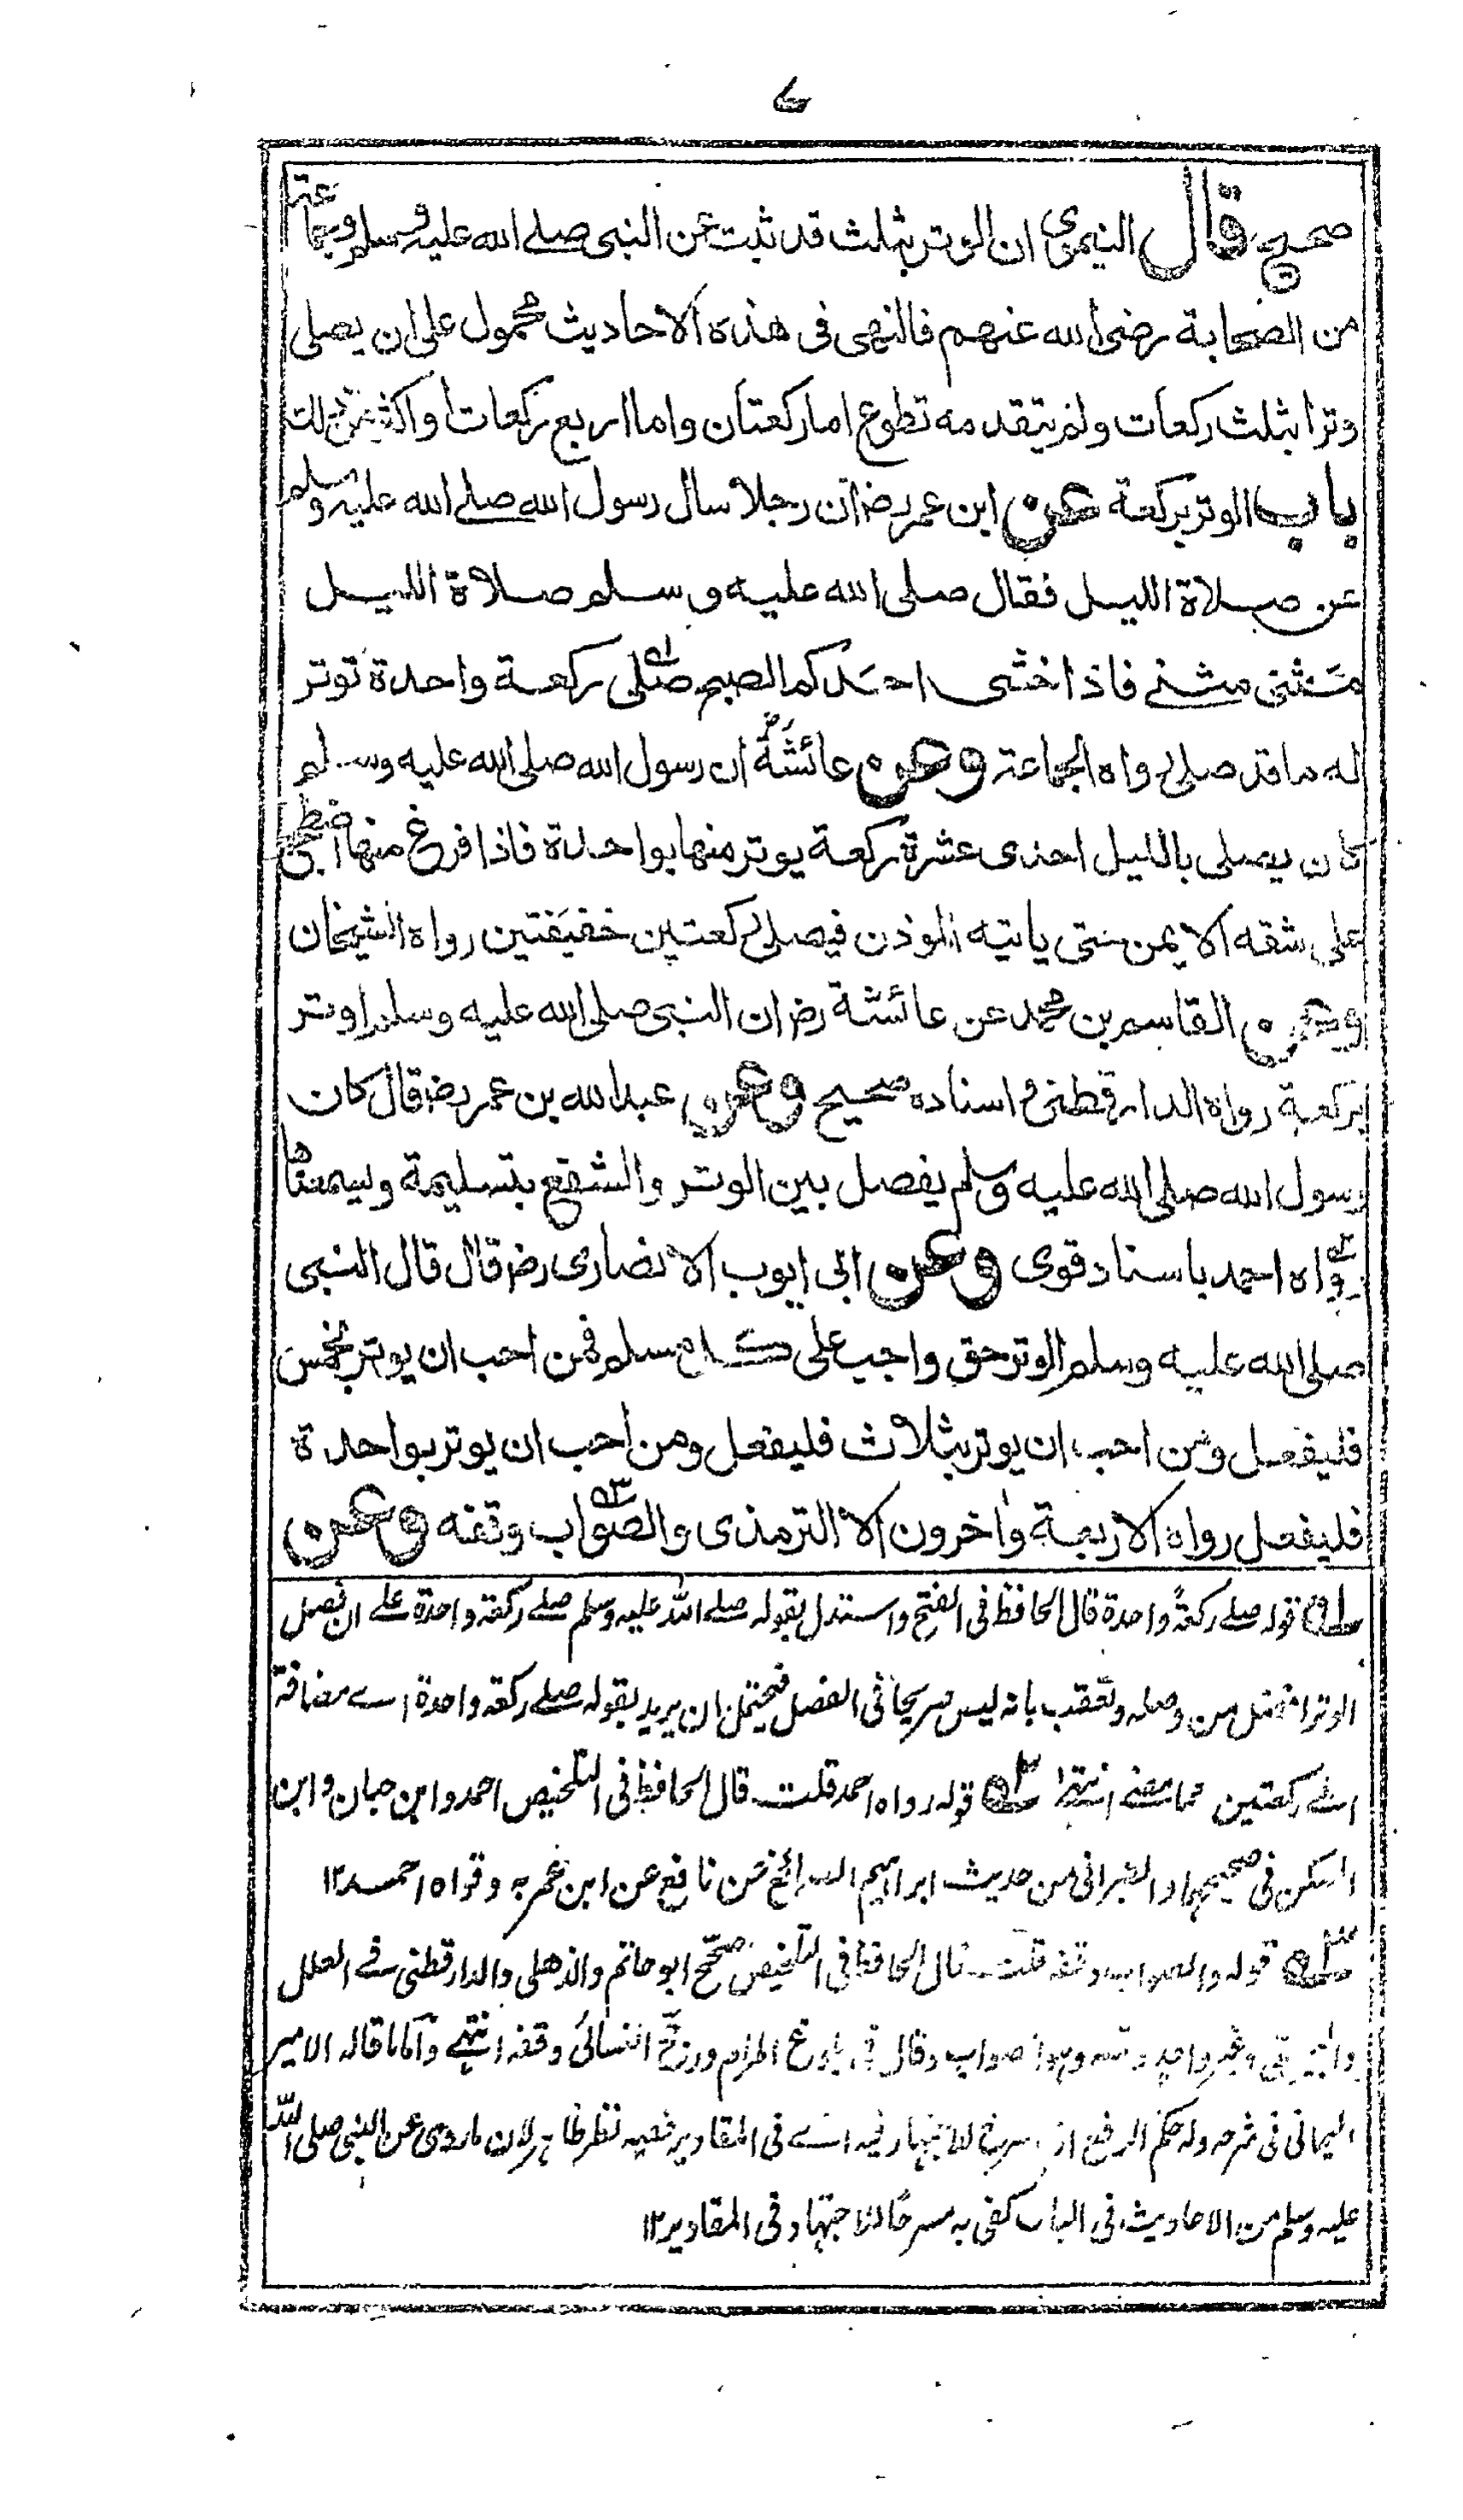 ۷
صحيح قال النيموي ان الوتر بثلث قد ثبت عن النبى صلى الله عليه وسلم وجماعة
من الصحابة رضى الله عنهم فالنهى فى هذه الاحاديث محمول على ان يصلى
وترا بثلث ركعات ولم يتقدمه تطوع اما ركعتان واما اربع ركعات او اكثر من ذلك
باب الوتر بركعة عن ابن عمر رض ان رجلا سال رسول الله صلى الله عليه وسلم
عن صلاة الليل فقال صلى الله عليه وسلم صلاة الليل
مثنى مثنى فاذا خشى احدكم الصبح صلى ركعة واحدة توتر
له ما قد صلى رواه الجماعة وعن عائشة رض ان رسول الله صلى الله عليه وسلم
كان يصلى بالليل احدى عشرة ركعة يوتر منها بواحدة فاذا فرغ منها اضطجع
على شقه الايمن حتى ياتيه المؤذن فيصلى ركعتين خفيفتين رواه الشيخان
وعن القاسم بن محمد عن عائشة رض ان النبى صلى الله عليه وسلم اوتر
بركعة رواه الدارقطنى واسناده صحيح وعن عبد الله بن عمر رض قال كان
رسول الله صلى الله عليه وسلم يفصل بين الوتر والشفع بتسليمة ويسمعناها
رواه احمد باسناد قوى وعن ابى ايوب الانصارى رض قال قال النبى
صلى الله عليه وسلم الوتر حق واجب على كل مسلم فمن احب ان يوتر بخمس
فليفعل ومن احب ان يوتر بثلاث فليفعل ومن احب ان يوتر بواحدة
فليفعل رواه الاربعة واخرون الا الترمذى والصواب وقفه وعن
له۱ قوله صلى ركعةً واحدة قال الحافظ فى الفتح واستدل بقوله صلے الله عليه وسلم صلے ركعة واحدة علے ان فصل
الوتر افضل من وصله وتعقب بانه ليس صريحا فى الفصل فيحتمل ان يريد بقوله صلے ركعة واحدة اے مضافة
الى ركعتين مما مضے انتهے ۲ه قوله رواه احمد قلت قال الحافظ فى التلخيص احمد وابن حبان وابن
السكن فى صحيحهما والطبرانى من حديث ابراهيم الصائغ عن نافع عن ابن عمر به وقواه احمد ۱۲
۳ه قوله والصواب وقفه قلت قال الحافظ فى التلخيص صحح ابو حاتم والذهلى والدارقطنى فے العلل
والبيهقى وغير واحد وقفه وهو الصواب وقال فى بلوغ المرام ورجح النسائى وقفه انتهے واما ما قاله الامير
اليمانى فى شرحه وله حكم الرفع اذ لا مسرح للاجتهاد فيه اے فى المقادير ففيه نظر ظاهر لان ما روى عن النبى صلى الله
عليه وسلم من الاحاديث فى الباب كفى به مسرحا للاجتهاد فى المقادير ۱۲